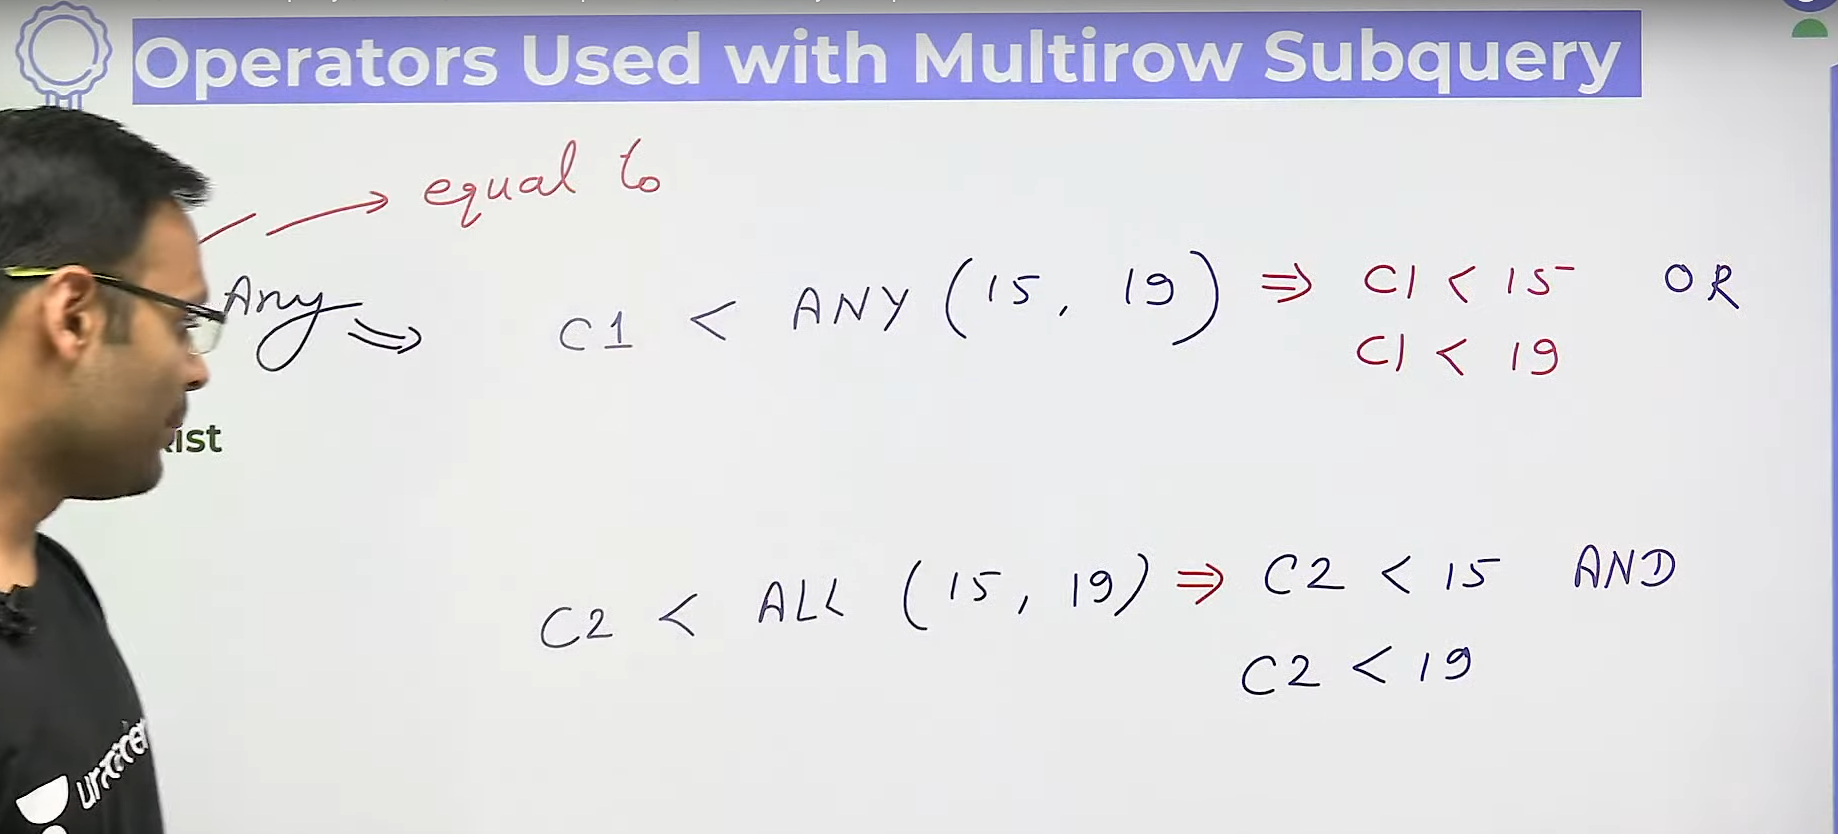 Operators Used with Multirow Subquery
equal to
Any
C1 < ANY (15, 19) ⇒ C1 < 15 OR
C1 < 19
C2 < ALL (15, 19) ⇒ C2 < 15 AND
C2 < 19